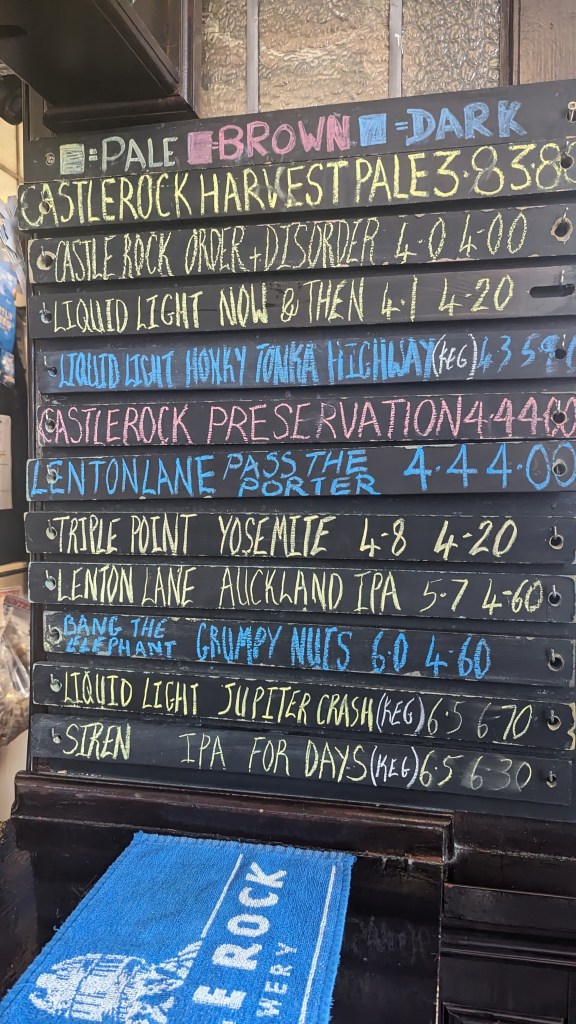 =PALE =BROWN =DARK
CASTLEROCK HARVEST PALE 3.8 3.80
CASTLE ROCK ORDER + DISORDER 4.0 4.00
LIQUID LIGHT NOW & THEN 4.1 4.20
LIQUID LIGHT HONKY TONKA HIGHWAY (KEG) 4.3 5.90
CASTLEROCK PRESERVATION 4.4 4.00
LENTON LANE PASS THE PORTER 4.4 4.00
TRIPLE POINT YOSEMITE 4.8 4.20
LENTON LANE AUCKLAND IPA 5.7 4.60
BANG THE ELEPHANT GRUMPY NUTS 6.0 4.60
LIQUID LIGHT JUPITER CRASH (KEG) 6.5 6.70
SIREN IPA FOR DAYS (KEG) 6.5 6.30
E ROCK
WERY